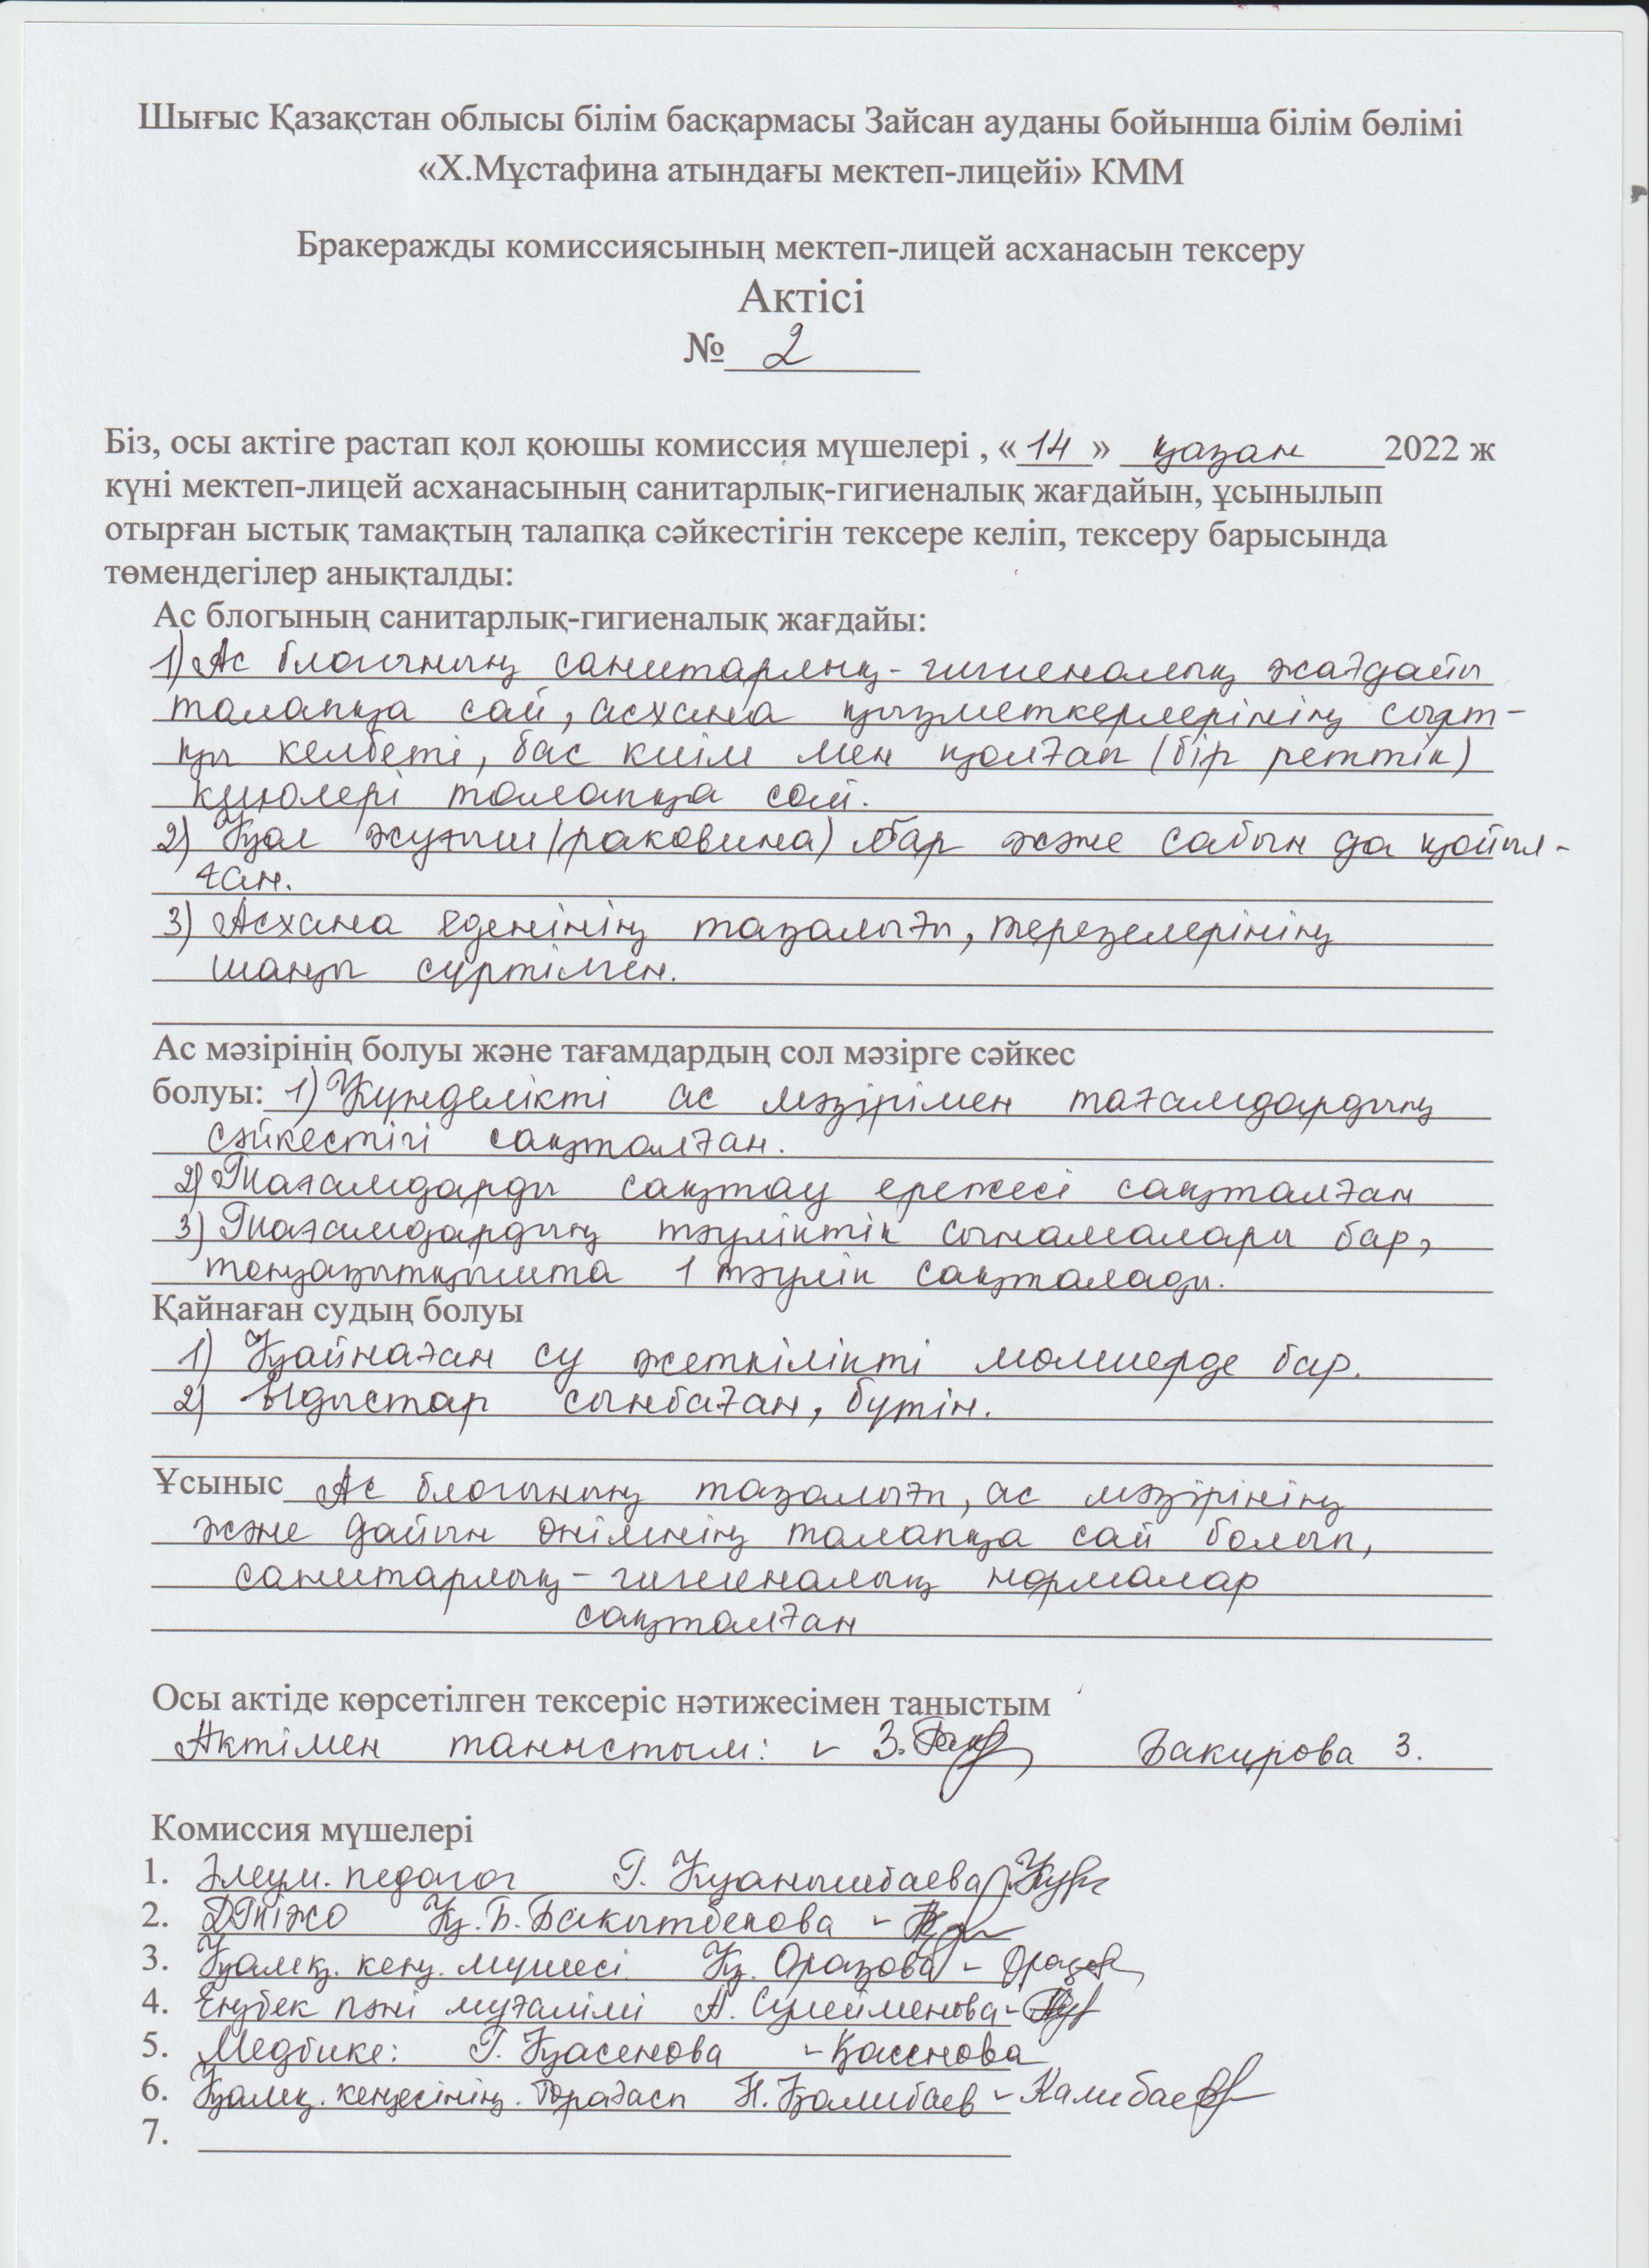 Шығыс Қазақстан облысы білім басқармасы Зайсан ауданы бойынша білім бөлімі
«Х.Мұстафина атындағы мектеп-лицейі» КММ
Бракеражды комиссиясының мектеп-лицей асханасын тексеру
Актісі
№ 2
Біз, осы актіге растап қол қоюшы комиссия мүшелері , «14» қазан 2022 ж
күні мектеп-лицей асханасының санитарлық-гигиеналық жағдайын, ұсынылып
отырған ыстық тамақтың талапқа сәйкестігін тексере келіп, тексеру барысында
төмендегілер анықталды:
Ас блогының санитарлық-гигиеналық жағдайы:
1) Ас блогының санитарлық-гигиеналық жағдайы
талапқа сай, асхана қызметкерлерінің сырт-
қы келбеті, бас киім мен қолғап (бір реттік)
киюлері талапқа сай.
2) Қол жуғыш (раковина) бар және сабын да қойыл-
ған.
3) Асхана еденінің тазалығы, терезелерінің
шаңы сүртілген.
Ас мәзірінің болуы және тағамдардың сол мәзірге сәйкес
болуы: 1) Күнделікті ас мәзірімен тағамдардың
сәйкестігі сақталған.
2) Тағамдарды сақтау ережесі сақталған
3) Тағамдардың тәуліктік сынамалары бар,
тоңазытқышта 1 тәулік сақталады.
Қайнаған судың болуы
1) Қайнаған су жеткілікті мөлшерде бар.
2) Ыдыстар сынбаған, бүтін.
Ұсыныс Ас блогының тазалығы, ас мәзірінің
және дайын өнімнің талапқа сай болып,
санитарлық-гигиеналық нормалар
сақталған
Осы актіде көрсетілген тексеріс нәтижесімен таныстым
Актімен таныстым: З. Бакирова З.
Комиссия мүшелері
1. Әлеум. педагог Г. Куанышбаева
2. ДТІЖО Қ. Б. Бакытбекова
3. Қамқ. кең. мүшесі Қ. Оразова -
4. Еңбек пәні мұғалімі А. Сулейменова -
5. Медбике: Г. Қасенова - Қасенова
6. Қамқ. кеңесінің төрағасы Н. Қалибаев - Калибаев
7.